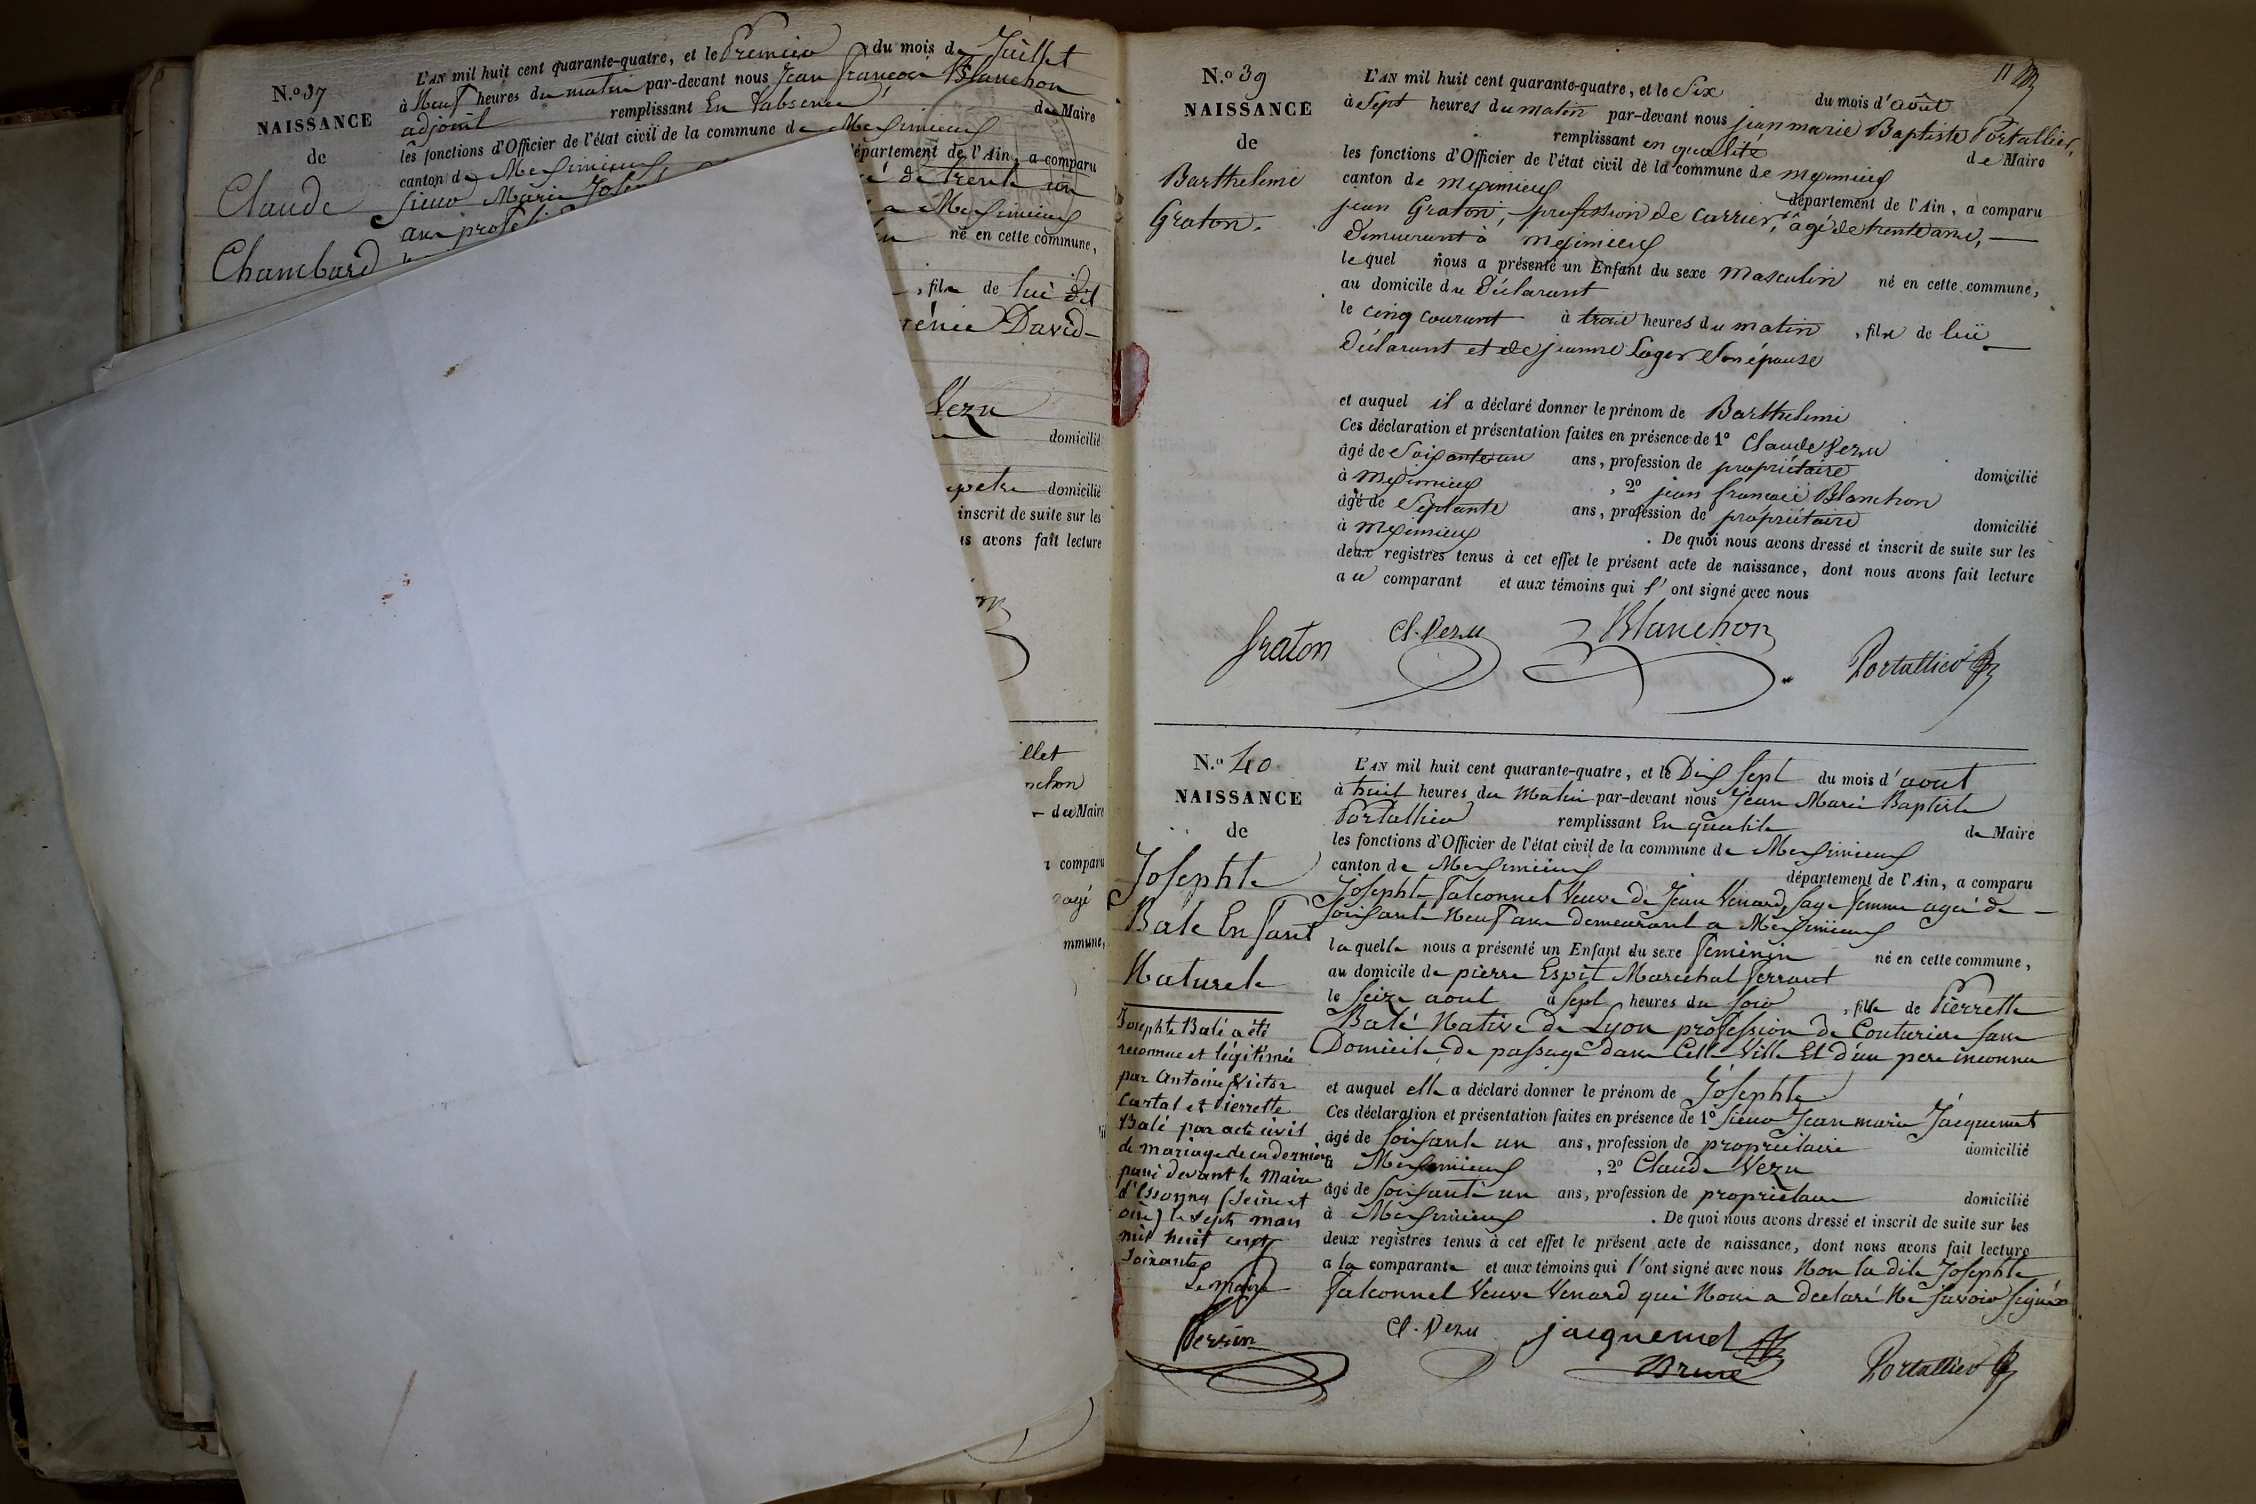 N.o 37
NAISSANCE
de
Claude
Chambard
L'AN mil huit cent quarante-quatre, et le Premier du mois de Juillet
à Neuf heures du matin par-devant nous Jean François Blanchon
adjoint remplissant En l'absence du Maire
les fonctions d'Officier de l'état civil de la commune de Meximieux
canton de Meximieux département de l'Ain, a comparu
Sieur Marie Joseph é de trente un
ans profes a Meximieux
né en cette commune,
, fils de lui dit
David
Vezu
domicilié
domicilié
inscrit de suite sur les
us avons fait lecture
illet
nchon
du Maire
a comparu
agé
mmune,
11
N.o 39
NAISSANCE
de
Barthelemi
Graton.
L'AN mil huit cent quarante-quatre, et le Six du mois d'août
à Sept heures du matin par-devant nous jean marie Baptiste Portallier,
remplissant en qualité de Maire
les fonctions d'Officier de l'état civil de la commune de meximieux
canton de meximieux département de l'Ain, a comparu
jean Graton, profession de carrier, âgé de trente ans,
Demeurant à meximieux
le quel nous a présenté un Enfant du sexe masculin né en cette commune,
au domicile du Déclarant
le cinq courant à trois heures du matin , fils de lui
Déclarant et de jeanne Loger Son épouse
et auquel il a déclaré donner le prénom de Barthelemi
Ces déclaration et présentation faites en présence de 1o Claude Vezu
âgé de Soixante un ans, profession de propriétaire domicilié
à Meximieux , 2o jean françois Blanchon
âgé de Septante ans, profession de propriétaire domicilié
à meximieux . De quoi nous avons dressé et inscrit de suite sur les
deux registres tenus à cet effet le présent acte de naissance, dont nous avons fait lecture
au comparant et aux témoins qui l'ont signé avec nous
Graton Cl. Vezu Blanchon Portallier
N.o 40
NAISSANCE
de
Josephte
Balé Enfant
Naturele
L'AN mil huit cent quarante-quatre, et le Dix Sept du mois d'aout
à huit heures du Matin par-devant nous Jean Marie Baptiste
Portallier remplissant En qualité de Maire
les fonctions d'Officier de l'état civil de la commune de Meximieux
canton de Meximieux département de l'Ain, a comparu
Josephte Falconnet Veuve de Jean Venard, Sage femme agée de
Soixante Neuf ans demeurant a Meximieux
la quelle nous a présenté un Enfant du sexe feminin né en cette commune,
au domicile de pierre Espit Marechal ferrant
le Seize aout à Sept heures du Soir , fille de Pierrette
Balé Native de Lyon profession de Couturiere sans
Domicile de passage dans Cette Ville Et d'un pere inconnu
et auquel elle a déclaré donner le prénom de Josephte
Ces déclaration et présentation faites en présence de 1o Sieur Jean marie Jacquemet
âgé de Soixante un ans, profession de propriétaire domicilié
à Meximieux , 2o Claude Vezu
âgé de Soixante un ans, profession de propriétaire domicilié
à Meximieux . De quoi nous avons dressé et inscrit de suite sur les
deux registres tenus à cet effet le présent acte de naissance, dont nous avons fait lecture
a la comparante et aux témoins qui l'ont signé avec nous Non la dite Josephte
Falconnet Veuve Venard qui Nous a declaré Ne Savoir Signer
Cl. Vezu jacquemet Portallier
Brune
Josephte Balé a été
reconnue et légitimée
par Antoine Victor
Cartal et Pierrette
Balé par acte civil
de mariage de ces derniers
passé devant le Maire
d'Essonnes (Seine et
oise) le sept mars
mil huit cent
Soixante
Le Maire
Persin